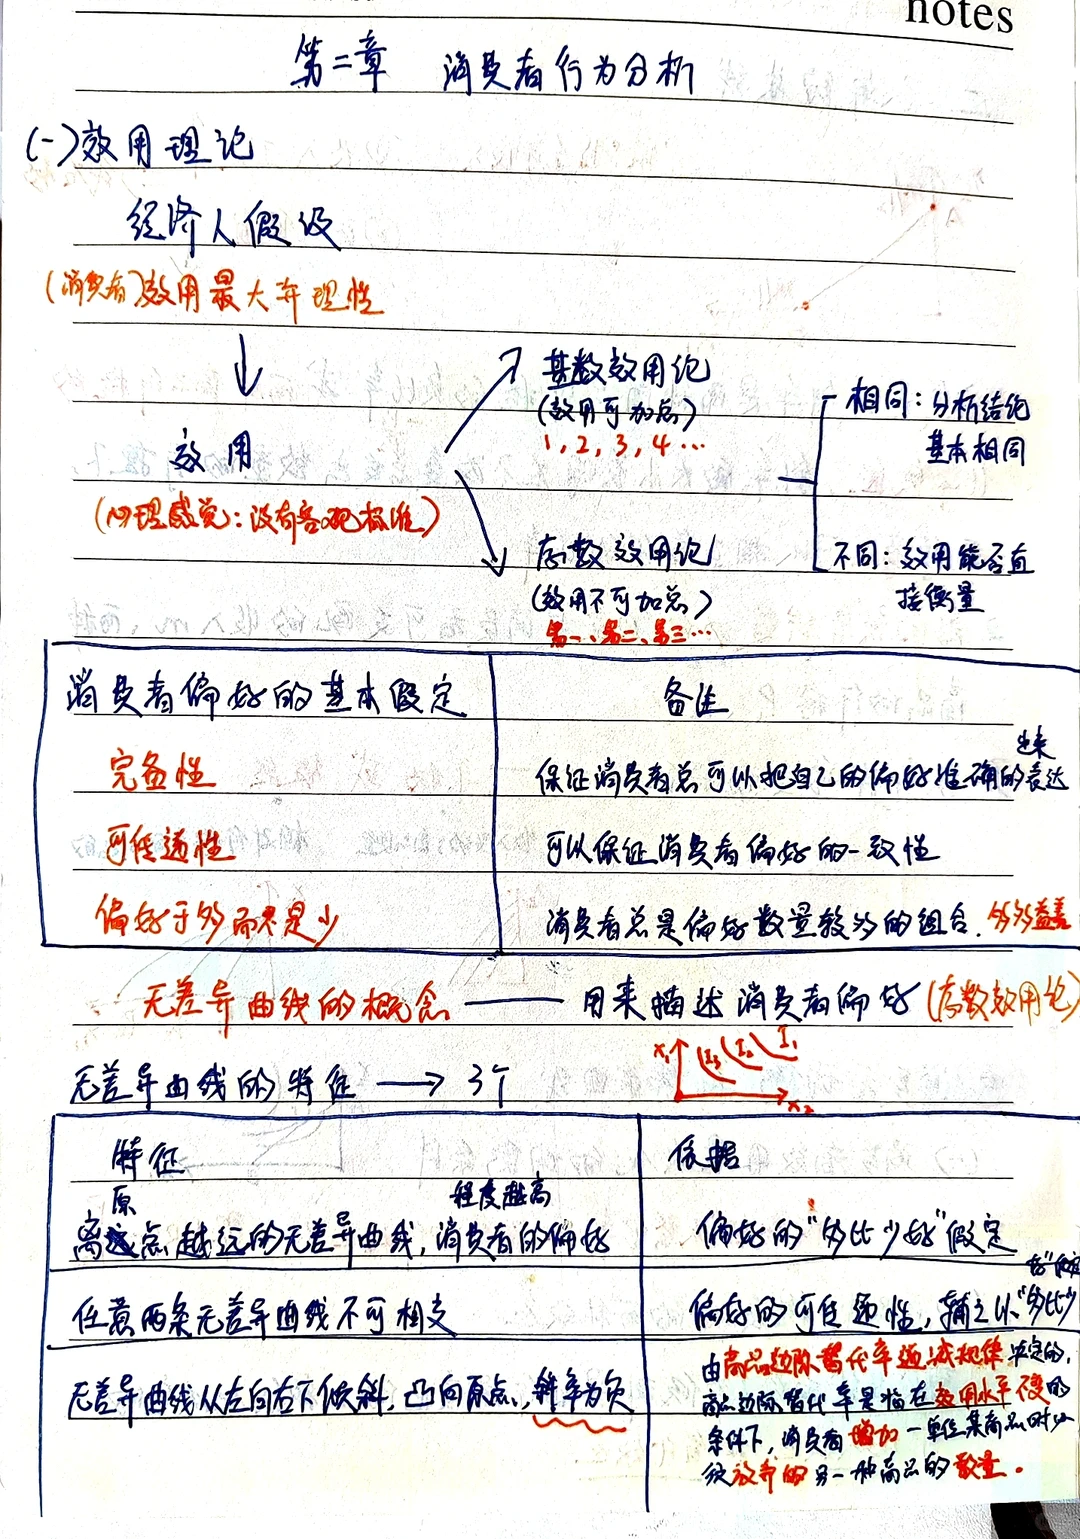 notes
第二章 消费者行为分析
(一)效用理论
经济人假设
(消费者)效用最大并理性
效用
(心理感觉:没有客观标准)
基数效用论
(效用可加总)
1,2,3,4…
序数效用论
(效用不可加总)
第一、第二、第三…
相同:分析结论
基本相同
不同:效用能否直
接衡量
消费者偏好的基本假定 备注
完备性 保证消费者总可以把自己的偏好准确的表达出来
可传递性 可以保证消费者偏好的一致性
偏好于多而不是少 消费者总是偏好数量较多的组合. 多多益善
无差异曲线的概念——用来描述消费者偏好(序数效用论)
X₁ I₃ I₂ I₁
X₂
无差异曲线的特征 → 3个
特征 依据
离原点越远的无差异曲线,消费者的偏好程度越高 偏好的"多比少好"假定
任意两条无差异曲线不可相交 偏好的可传递性,辅之以"多比少好"假定
无差异曲线从左向右下倾斜,凸向原点,斜率为负
由商品边际替代率递减规律决定的,
商品边际替代率是指在效用水平不变的
条件下,消费者增加一单位某商品时必
须放弃的另一种商品的数量.